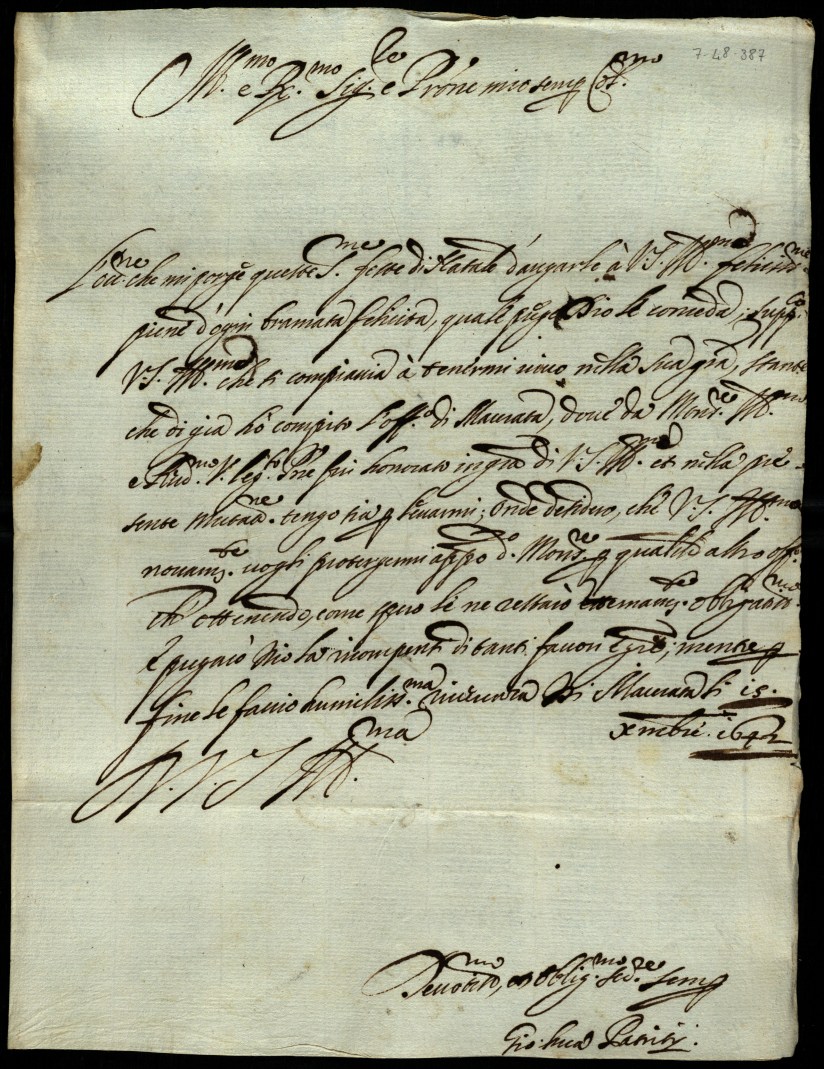 7-48-387
Ill.mo e R.mo Sig.re e P'rone mio semp Col.mo
L'occ.ne che mi porge queste S.me feste di Natale d'augurle à V.S. Ill.ma felicis.me
piene d'ogni bramata felicità, quale Dio le conceda; supp.co
V.S. Ill.ma che si compiaccia à tenermi vivo nella sua gra, stante
che di già hò compito l'off.o di Macerata, dove da Mons.re Ill.mo
e V. leg.to fui honorato in gra di V.S. Ill.ma et nella pre-
sente mutat.ne tengo sia p levarmi; onde desidero, che V.S. Ill.ma
novam.te vogli protegermi appo d.o Mons.re p qualche altro off.o
che ottenendo, come spero le ne restarò eternam.te obligatis.mo
e pregarò Dio la ricompensi di tanti favori; mentre p
fine le faccio humiliss.ma riverenza Di Macerata li 15.
Xmbre. 1642
D. V. S. Ill.ma
Devotis.mo, et oblig.mo se.re semp
Gio: Luca Patritij.